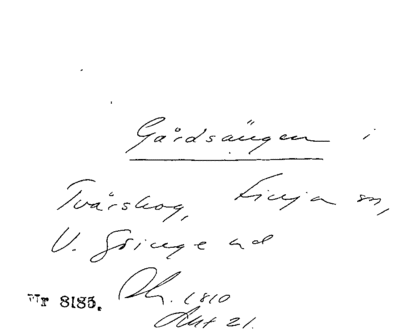 Gårdsängen i
Tvärskog, Finja sn,
V. Göinge hd
Nr 8185.
1810
Akt 21.